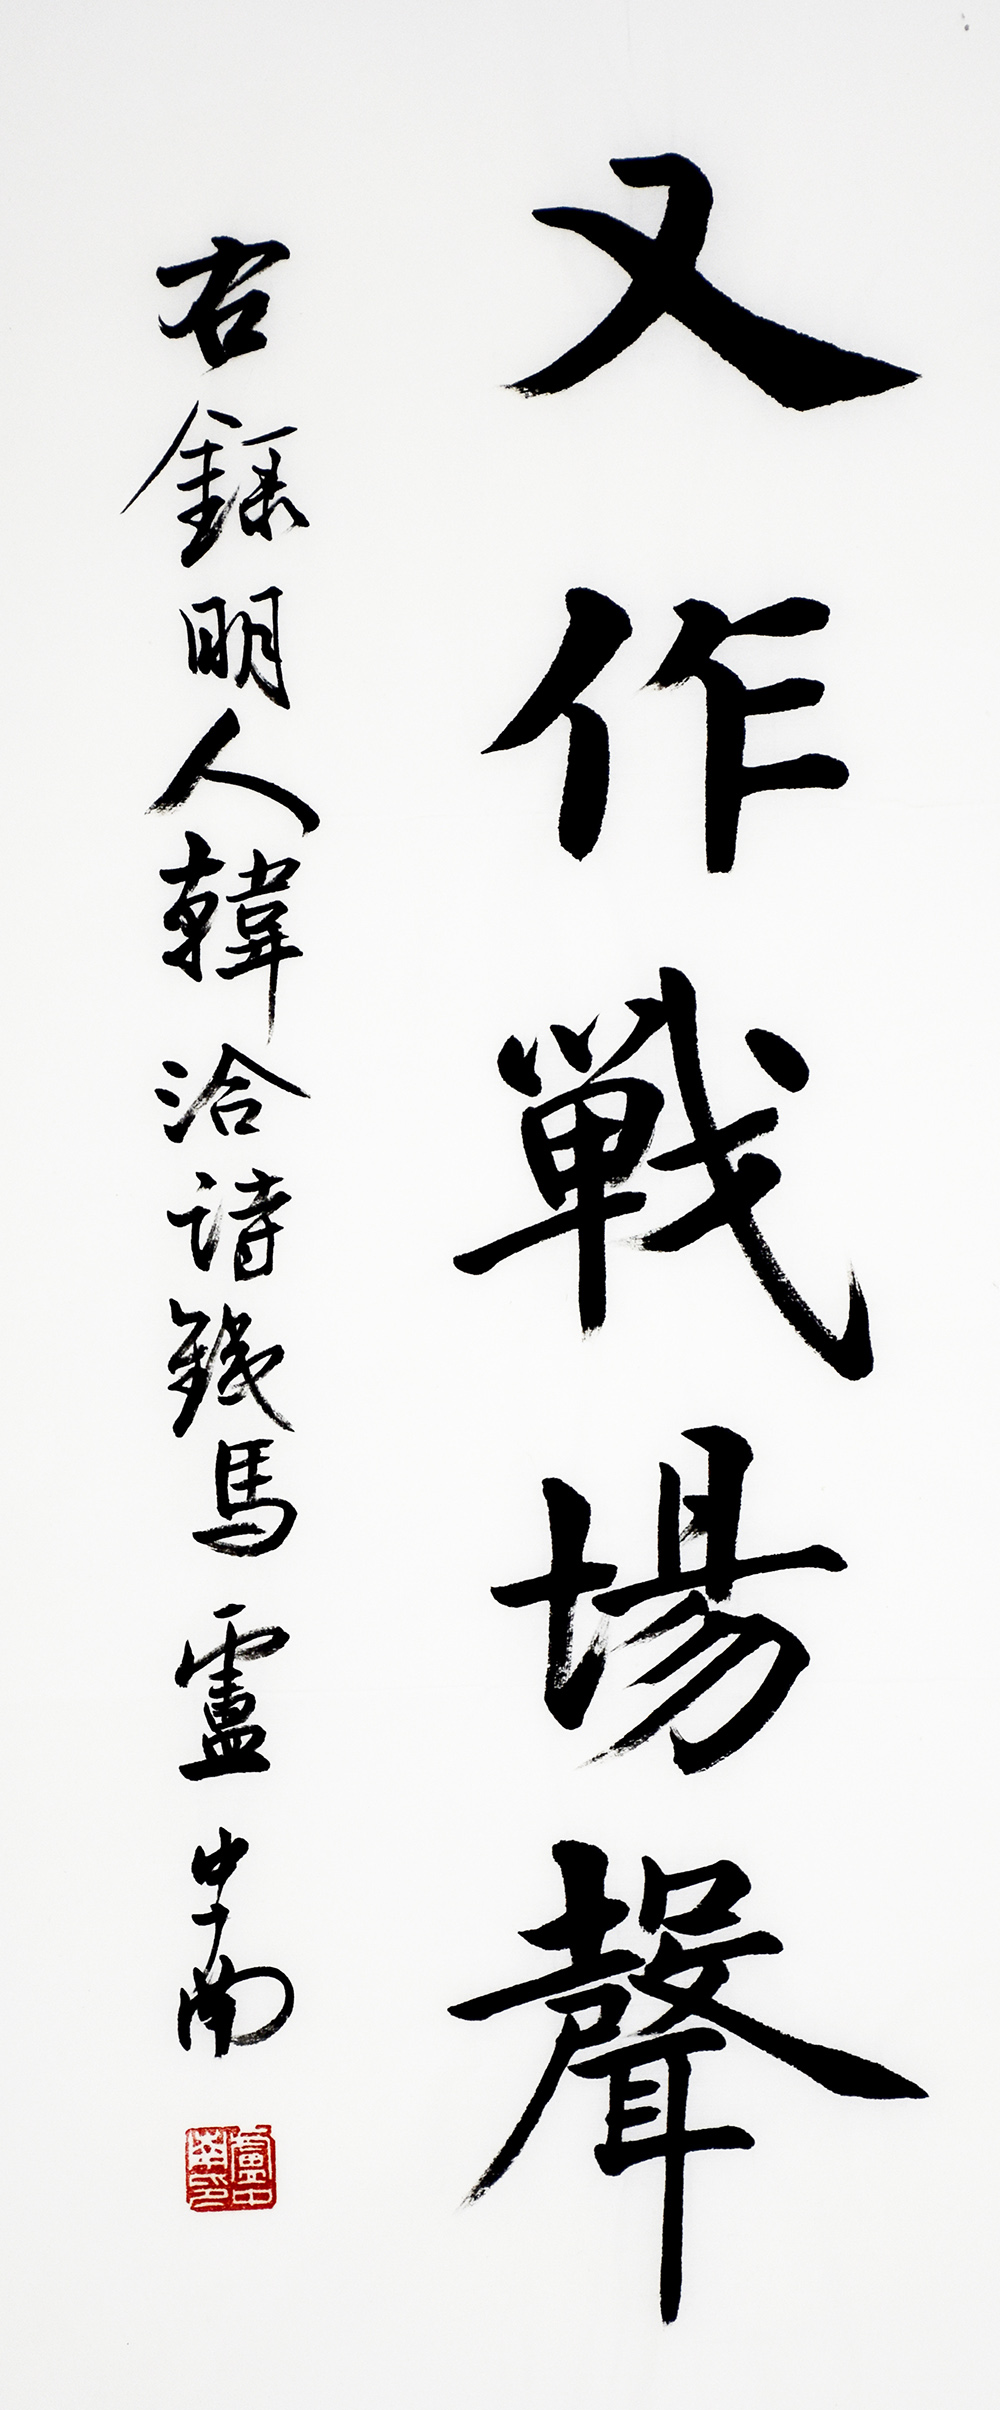 又作戰場聲
右錄明人韓洽詩鐵馬 盧中南
盧中南印